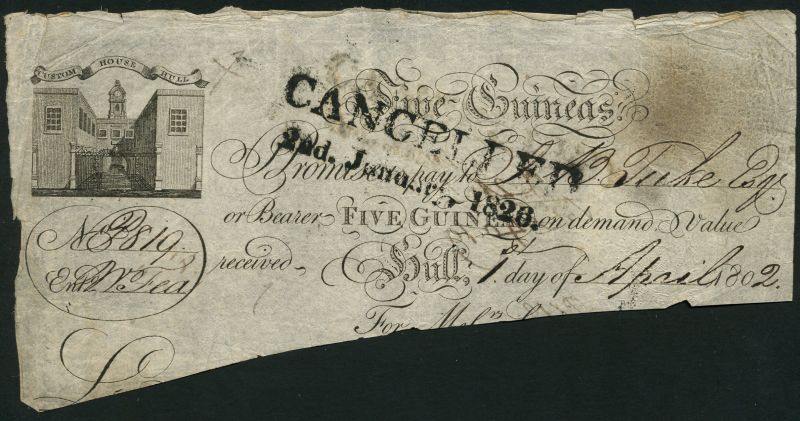 CUSTOM HOUSE HULL
Five Guineas.
CANCELLED
2nd. January, 1820.
Promise to pay to B. Tuke Esqr.
or Bearer FIVE GUINEAS on demand Value
received Hull, 1st. day of April 1802.
No. 2819
Entd. Wm Fea
For